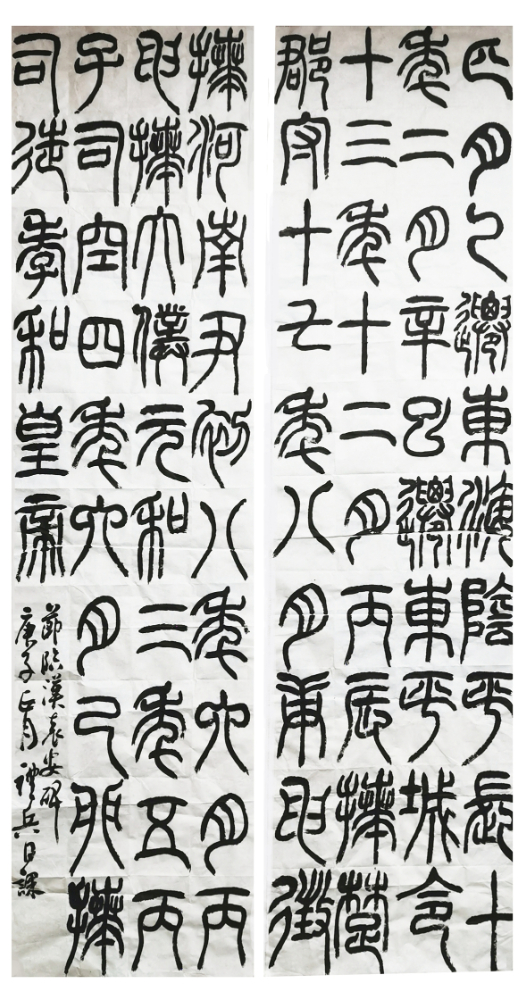 正月乙遷東海陰平長十
年二月辛巳遷東平城令
十三年十二月丙辰拜楚
郡守十七年八月庚申徵
拜河南尹初八年六月丙
申拜大僕元和三年五丙
子司空四年六月己卯拜
司徒孝和皇帝
節臨漢袁安碑
庚子正月禮兵日課